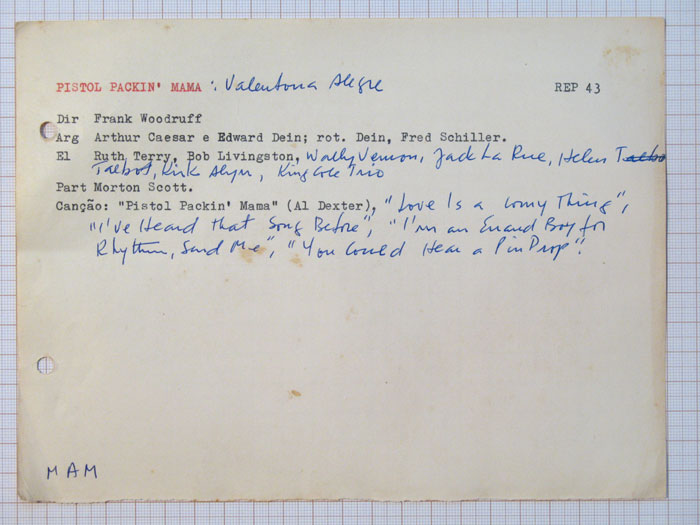 PISTOL PACKIN' MAMA : Valentona Alegre REP 43
Dir Frank Woodruff
Arg Arthur Caesar e Edward Dein; rot. Dein, Fred Schiller.
El Ruth Terry, Bob Livingston, Wally Vernon, Jack La Rue, Helen
Talbot, Kirk Alyn, King Cole Trio
Part Morton Scott.
Canção: "Pistol Packin' Mama" (Al Dexter), "Love Is a Corny Thing",
"I've Heard that Song Before", "I'm an Errand Boy for
Rhythm, Send Me", "You Could Hear a Pin Drop".
MAM